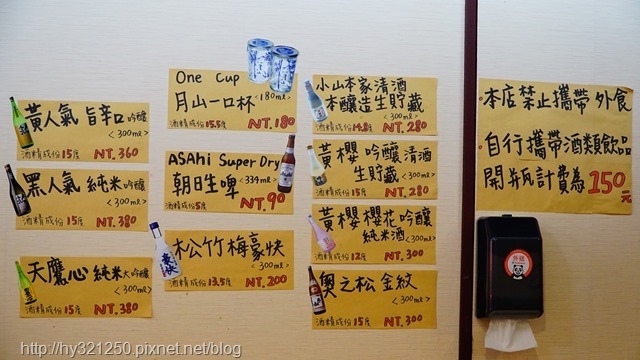 黃人氣 旨辛口吟釀
<300ml>
酒精成份15度 NT.360
黑人氣 純米吟釀
<300ml>
酒精成份15度 NT.380
天鷹心 純米大吟釀
<300ml>
酒精成份15度 NT.380
One Cup
月山一口杯 <180ml>
酒精成份15.5度 NT.180
ASAhi Super Dry
朝日生啤 <334ml>
酒精成份5度 NT.90
松竹梅豪快
<300ml>
酒精成份13.5度 NT.200
小山本家清酒
本釀造生貯藏
<300ml>
酒精成份14.8度 NT.280
黃櫻 吟釀清酒
生貯藏 <300ml>
酒精成份15度 NT.280
黃櫻 櫻花吟釀
純米酒 <300ml>
酒精成份12度 NT.300
奧之松金紋
<300ml>
酒精成份15度 NT.300
本店禁止攜帶外食
自行攜帶酒類飲品
開瓶計費為150元
http://hy321250.pixnet.net/blog